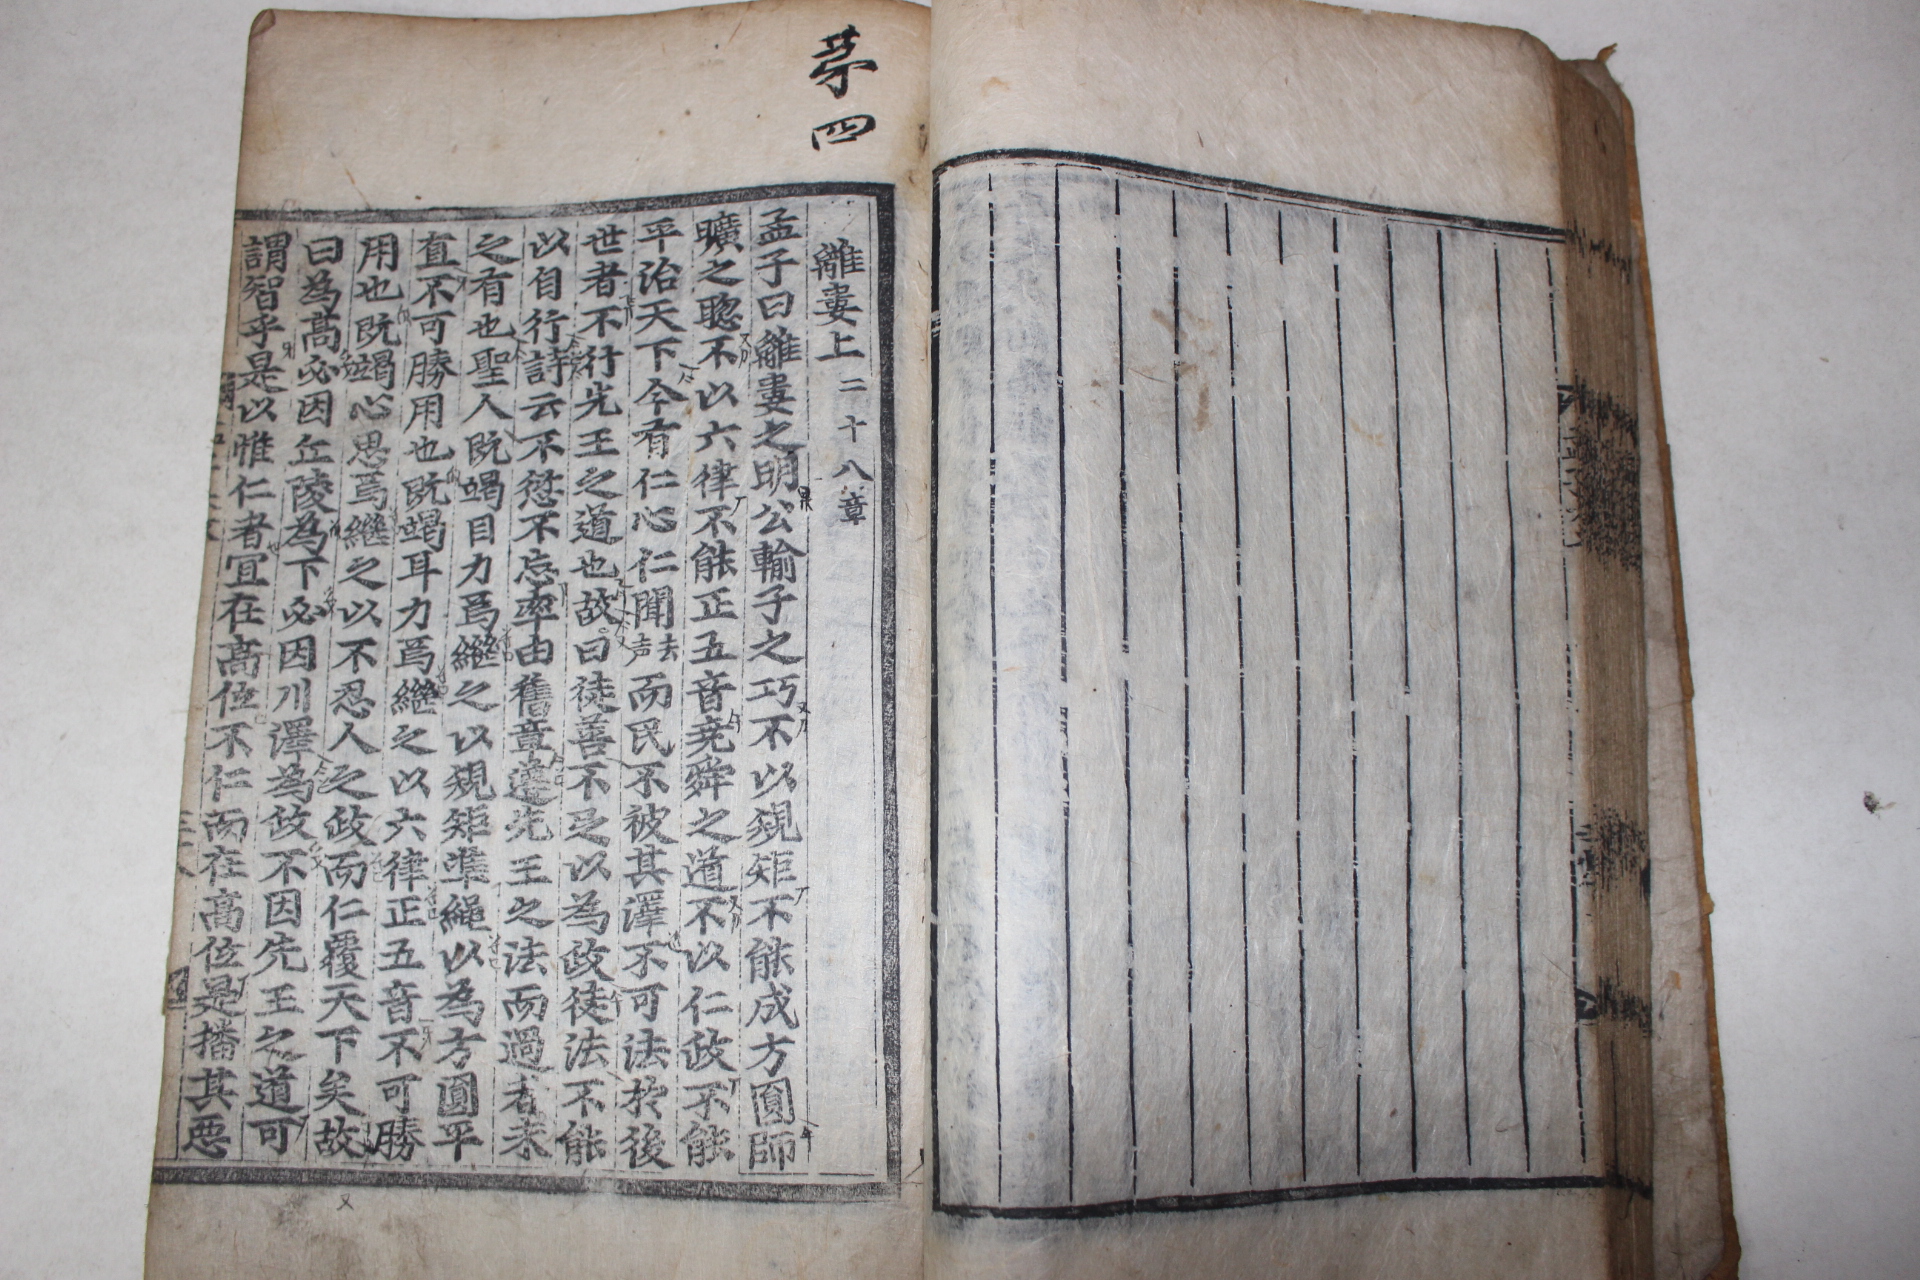 苐四
離婁上 二十八章
孟子曰離婁之明公輸子之巧不以規矩不能成方圓師
曠之聰不以六律不能正五音堯舜之道不以仁政不能
平治天下今有仁心仁聞去声而民不被其澤不可法於後
世者不行先王之道也故曰徒善不足以為政徒法不能
以自行詩云不愆不忘率由舊章遵先王之法而過者未
之有也聖人既竭目力焉繼之以規矩準繩以為方圓平
直不可勝用也既竭耳力焉繼之以六律正五音不可勝
用也既竭心思焉繼之以不忍人之政而仁覆天下矣故
曰為高必因丘陵為下必因川澤為政不因先王之道可
謂智乎是以惟仁者宜在高位不仁而在高位是播其惡